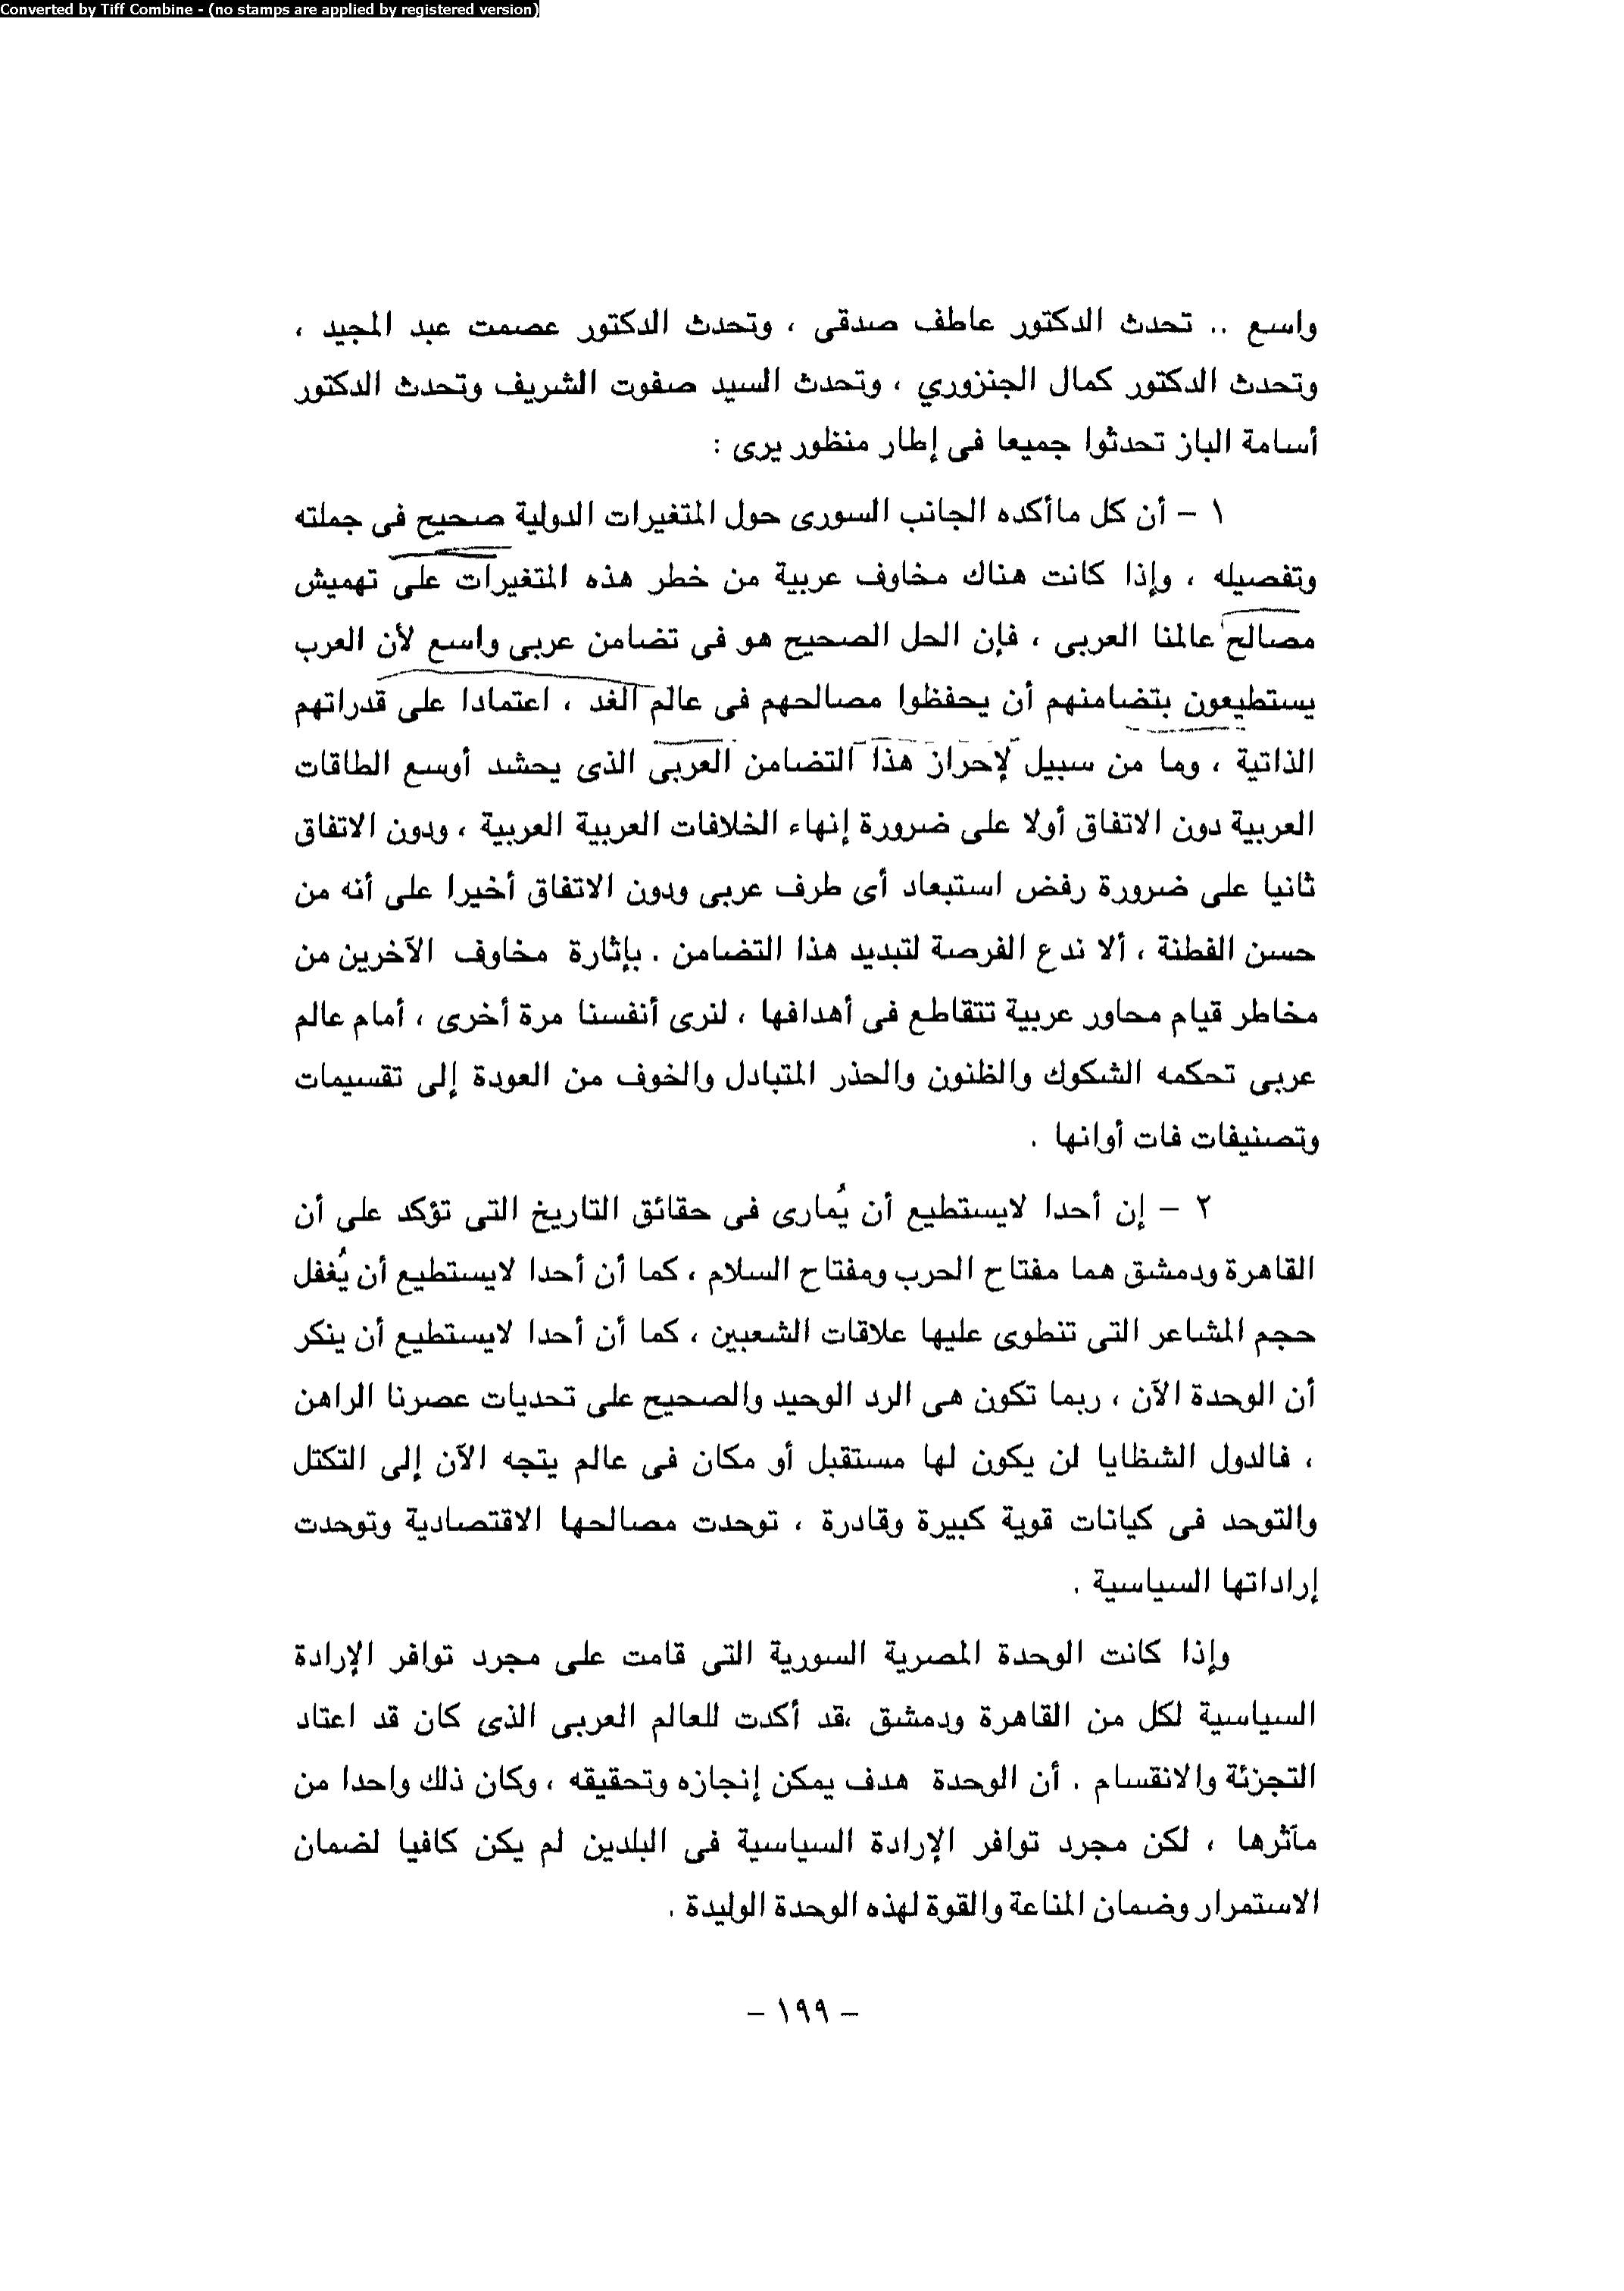 Converted by Tiff Combine - (no stamps are applied by registered version)
واسع .. تحدث الدكتور عاطف صدقى ، وتحدث الدكتور عصمت عبد المجيد ،
وتحدث الدكتور كمال الجنزوري ، وتحدث السيد صفوت الشريف وتحدث الدكتور
أسامة الباز تحدثوا جميعا فى إطار منظور يرى :
١ – أن كل ماأكده الجانب السورى حول المتغيرات الدولية صحيح فى جملته
وتفصيله ، وإذا كانت هناك مخاوف عربية من خطر هذه المتغيرات على تهميش
مصالح عالمنا العربى ، فإن الحل الصحيح هو فى تضامن عربى واسع لأن العرب
يستطيعون بتضامنهم أن يحفظوا مصالحهم فى عالم الغد ، اعتمادا على قدراتهم
الذاتية ، وما من سبيل لإحراز هذا التضامن العربى الذى يحشد أوسع الطاقات
العربية دون الاتفاق أولا على ضرورة إنهاء الخلافات العربية العربية ، ودون الاتفاق
ثانيا على ضرورة رفض استبعاد أى طرف عربى ودون الاتفاق أخيرا على أنه من
حسن الفطنة ، ألا ندع الفرصة لتبديد هذا التضامن . بإثارة مخاوف الآخرين من
مخاطر قيام محاور عربية تتقاطع فى أهدافها ، لنرى أنفسنا مرة أخرى ، أمام عالم
عربى تحكمه الشكوك والظنون والحذر المتبادل والخوف من العودة إلى تقسيمات
وتصنيفات فات أوانها .
٢ – إن أحدا لايستطيع أن يُمارى فى حقائق التاريخ التى تؤكد على أن
القاهرة ودمشق هما مفتاح الحرب ومفتاح السلام ، كما أن أحدا لايستطيع أن يُغفل
حجم المشاعر التى تنطوى عليها علاقات الشعبين ، كما أن أحدا لايستطيع أن ينكر
أن الوحدة الآن ، ربما تكون هى الرد الوحيد والصحيح على تحديات عصرنا الراهن
، فالدول الشظايا لن يكون لها مستقبل أو مكان فى عالم يتجه الآن إلى التكتل
والتوحد فى كيانات قوية كبيرة وقادرة ، توحدت مصالحها الاقتصادية وتوحدت
إراداتها السياسية .
وإذا كانت الوحدة المصرية السورية التى قامت على مجرد توافر الإرادة
السياسية لكل من القاهرة ودمشق ،قد أكدت للعالم العربى الذى كان قد اعتاد
التجزئة والانقسام . أن الوحدة هدف يمكن إنجازه وتحقيقه ، وكان ذلك واحدا من
مآثرها ، لكن مجرد توافر الإرادة السياسية فى البلدين لم يكن كافيا لضمان
الاستمرار وضمان المناعة والقوة لهذه الوحدة الوليدة .
– ١٩٩ –